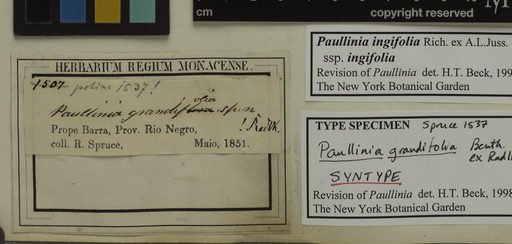 cm
copyright reserved
HERBARIUM REGIUM MONACENSE.
1507 potius 1537!
Paullinia grandifolia sp. n.
! Radlk.
Prope Barra, Prov. Rio Negro,
coll. R. Spruce, Maio, 1851.
Paullinia ingifolia Rich. ex A.L.Juss.
ssp. ingifolia
Revision of Paullinia det. H.T. Beck, 199
The New York Botanical Garden
TYPE SPECIMEN Spruce 1537
Paullinia grandifolia Benth.
ex Radl
SYNTYPE
Revision of Paullinia det. H.T. Beck, 1998
The New York Botanical Garden